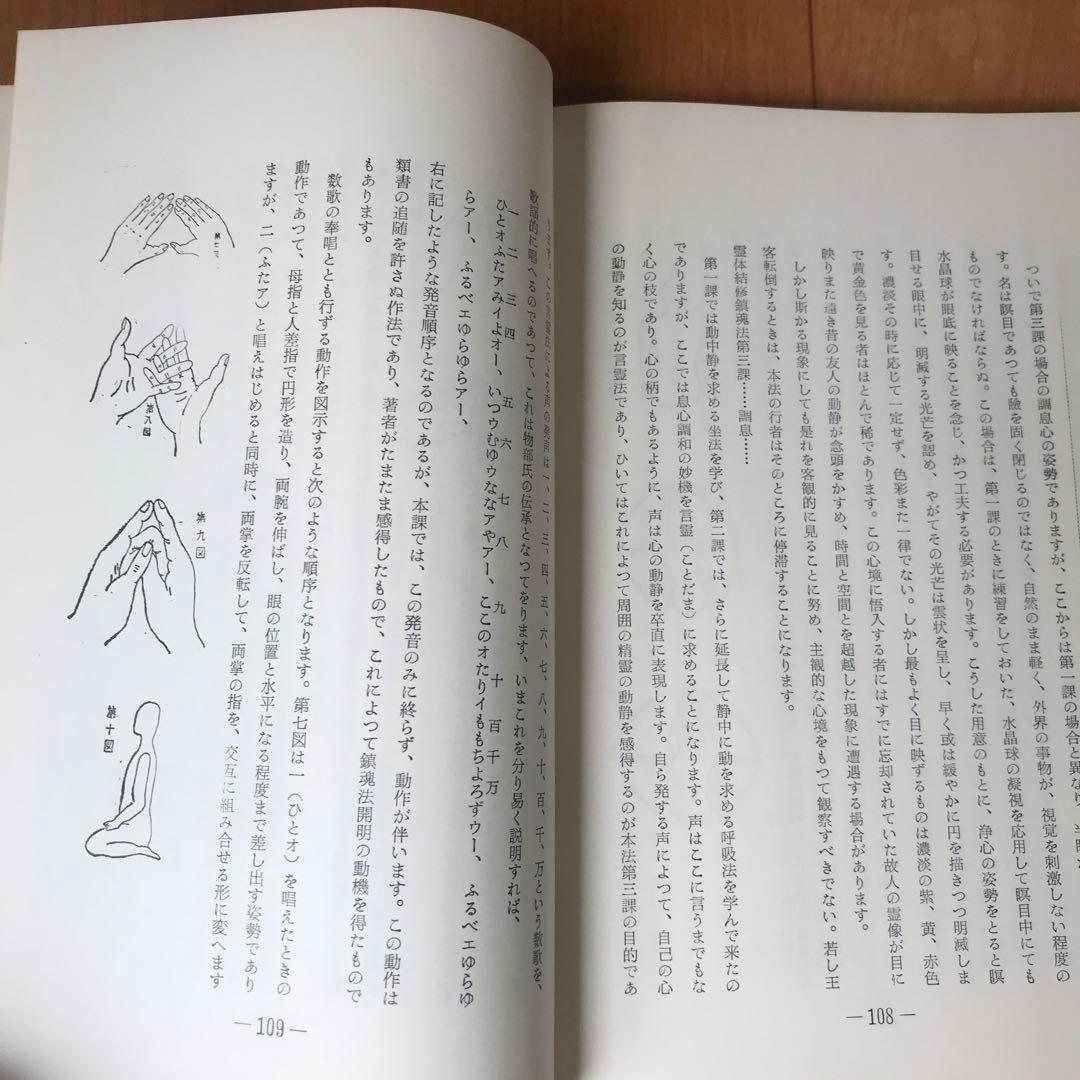 ついで第三課の場合の調息心の姿勢でありますが、ここからは第一課の場合と異なり、
す。名は瞑目であつても瞼を固く閉じるのではなく、自然のまま軽く、外界の事物が、視覚を刺激しない程度の
ものでなければならぬ。この場合は、第一課のときに練習をしておいた、水晶球の凝視を応用して瞑目中にても
水晶球が眼底に映ることを念じ、かつ工夫する必要があります。こうした用意のもとに、浄心の姿勢をとると瞑
目せる眼中に、明滅する光芒を認め、やがてその光芒は雲状を呈し、早く或は緩やかに円を描きつつ明滅しま
す。濃淡その時に応じて一定せず、色彩また一律でない。しかし最もよく目に映ずるものは濃淡の紫、黄、赤色
で黄金色を見る者はほとんで稀であります。この心境に悟入する者にはすでに忘却されていた故人の霊像が目に
映りまた遠き昔の友人の動静が念頭をかすめ、時間と空間とを超越した現象に遭遇する場合があります。
しかし斯かる現象にしても是れを客観的に見ることに努め、主観的な心境をもつて観察すべきでない。若し王
客転倒するときは、本法の行者はそのところに停滞することになります。
霊体結修鎮魂法第三課……調息……
第一課では動中静を求める坐法を学び、第二課では、さらに延長して静中に動を求める呼吸法を学んで来たの
でありますが、ここでは息心調和の妙機を言霊(ことだま)に求めることになります。声はここに言うまでもな
く心の枝であり。心の柄でもあるように、声は心の動静を卒直に表現します。自ら発する声によつて、自己の心
の動静を知るのが言霊法であり、ひいてはこれによつて周囲の精霊の動静を感得するのが本法第三課の目的であ
―108―
ります。この言霊法による声の発声は一、二、三、四、五、六、七、八、九、十、百、千、万という数歌を、
歌謡的に唱へるのであつて、これは物部氏の伝承となつてをります、いまこれを分り易く説明すれば、
一 二 三 四 五 六 七 八 九 十 百 千 万
ひとオふたアみイよオー、いつゥむゆゥななアやアー、ここのオたりイももちよろずウー、 ふるべエゆらゆ
らアー、ふるべエゆらゆらアー、
右に記したような発音順序となるのであるが、本課では、この発音のみに終らず、動作が伴います。この動作は
類書の追随を許さぬ作法であり、著者がたまたま感得したもので、これによつて鎮魂法開明の動機を得たもので
もあります。
数歌の奉唱ととも行ずる動作を図示すると次のような順序となります。第七図は一(ひとオ)を唱えたときの
動作であつて、母指と人差指で円形を造り、両腕を伸ばし、眼の位置と水平になる程度まで差し出す姿勢であり
ますが、二(ふたア)と唱えはじめると同時に、両掌を反転して、両掌の指を、交互に組み合せる形に変へます
第七図
第八図
第九図
第十図
―109―